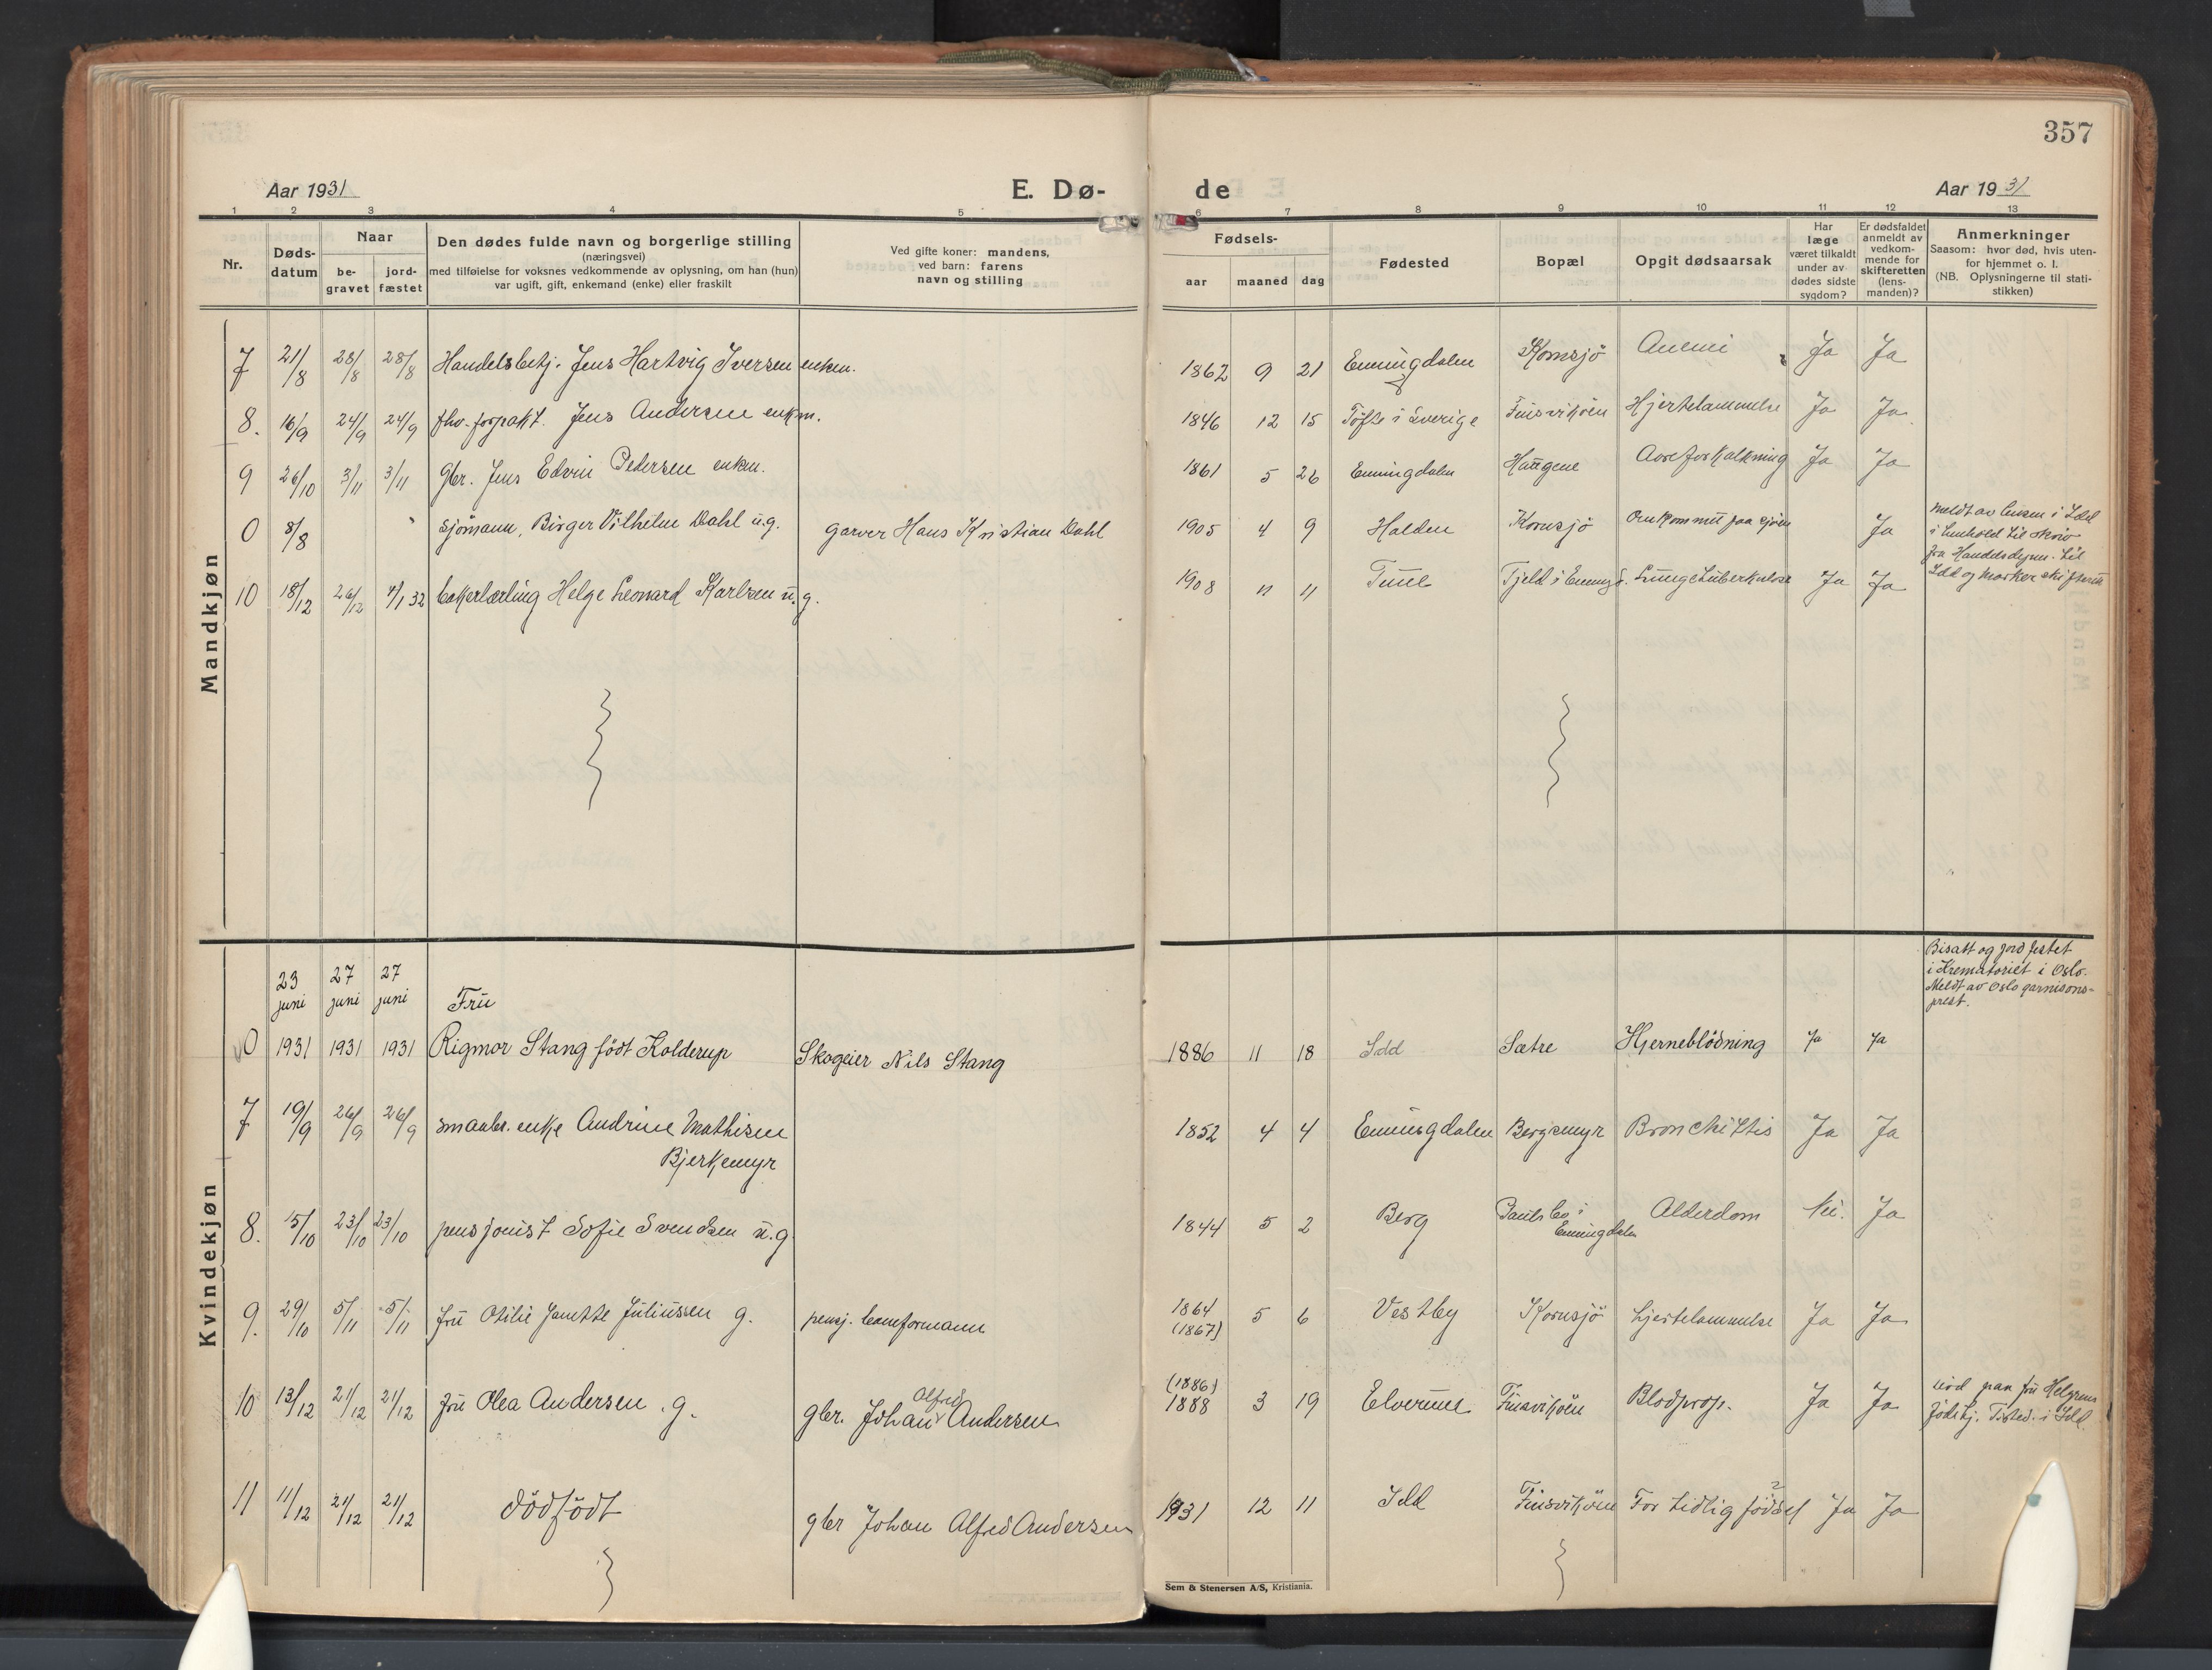 357
Aar 1931
E. Dø-
de
Aar 1931
1 2 3 4 5 6 7 8 9 10 11 12 13
Nr.
Døds-
datum
Naar
be-
gravet
jord-
fæstet
Den dødes fulde navn og borgerlige stilling
(næringsvei)
med tilføielse for voksnes vedkommende av oplysning, om han (hun)
var ugift, gift, enkemand (enke) eller fraskilt
Ved gifte koner: mandens,
ved barn: farens
navn og stilling
Fødsels-
aar maaned dag
Fødested
Bopæl
Opgit dødsaarsak
Har
læge
været tilkaldt
under av-
dødes sidste
sygdom?
Er dødsfaldet
anmeldt av
vedkom-
mende for
skifteretten
(lens-
manden)?
Anmerkninger
Saasom: hvor død, hvis uten-
for hjemmet o. l.
(NB. Oplysningerne til stati-
stikken)
Mandkjøn
7 21/8 28/8 28/8 Handelsbetj. Jens Hartvig Iversen enkem. 1862 9 21 Enningdalen Kornsjö Anemi Ja Ja
8. 16/9 24/9 24/9 fhv. forpakt. Jens Andersen enkm. 1846 12 15 Töfte i Sverige Finsviköen Hjertelammelse Ja Ja
9 26/10 3/11 3/11 gbr. Jens Edvin Pedersen enkm. 1861 5 26 Enningdalen Haugene Aareforkalkning Ja Ja
0 8/8 sjömann, Birger Vilhelm Dahl u.g. garver Hans Kristian Dahl 1905 4 9 Halden Kornsjö Omkommet paa sjöen Ja
meldt av lensm i Idd
i henhold til skriv
fra Handelsdepm. til
Idd og Marker skifterett
10 18/12 26/12 4/1 32 bakerlærling Helge Leonard Karlsen u.g. 1908 11 11 Tune Tjeld i Enningd. Lungetuberkulose Ja Ja
Kvindekjøn
23 juni 27 juni 27 juni Fru
Bisatt og jordfestet
i Krematoriet i Oslo.
Meldt av Oslo garnisons-
prest.
0 1931 1931 1931 Rigmor Stang födt Kolderup Skogeier Nils Stang 1886 11 18 Idd Sætre Hjerneblödning Ja Ja
7 19/9 26/9 26/9 smaabr. enke Andrine Mathisen 1852 4 4 Enningdalen Bergsmyr Bronchittis Ja Ja
Bjerkemyr
8. 15/10 23/10 23/10 pensjonist Sofie Svendsen u.g. 1844 5 2 Berg Paulsbo i Enningdalen Alderdom Nei. Ja
9. 29/10 5/11 5/11 fru Otilie Janette Juliussen g. pensj. baneformann 1864 (1867) 5 6 Vestby Kornsjö hjertelammelse Ja Ja
10 13/12 21/12 21/12 fru Olea Andersen . g. gbr. Johan Alfred Andersen (1886) 1888 3 19 Elverum Finsviköen Blodprop. Ja Ja
död paa fru Helgrens
födehj. Tisted. i Idd.
11 11/12 21/12 21/12 dödfödt gbr Johan Alfred Andersen 1931 12 11 Idd Finsviköen For tidlig födsel ? Ja Ja
Sem & Stenersen A/S, Kristiania.